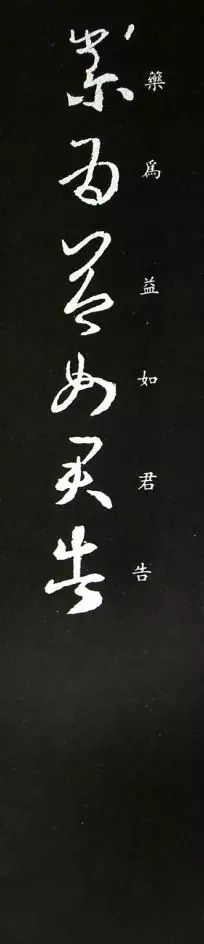 藥為益如君告
藥爲益如君告